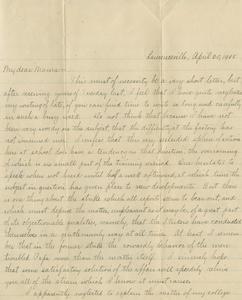 Lawrenceville, April 20, 1905
My dear Mamma:
This must of necessity be a very short letter, but
after receiving yours of Tuesday last, I feel that I have quite neglected
my writing of late, if you can find time to write so long and carefully
in such a busy week. Do not think that because I have not
been very wordy on this subject, that the difficulty at the factory has
not concerned me. I confess that this very secluded sphere of action
here at school does have a tendency in that direction, the overcoming
of which is no small part of the training received. One hesitates to
speak when not heard until half a week afterward, at which time the
subject in question has given place to new developments. But there
is one thing about the strike which all reports seem to bear out, and
which must deprive the matter, unpleasant as it may be, of a great part
of its objectionable qualities, namely, that the strikers have conducted
themselves in a gentlemanly way at all times. At least I remem-
ber that in the former strike the cowardly behavior of the men
troubled Papa more than the matter itself. I sincerely hope
that some satisfactory solution of the affair will speedily relieve
you all of the stress which I know it must cause.
I apparently neglected to explain the matter of my college